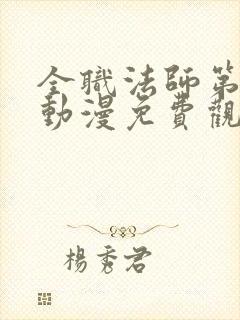 全職法師第
動漫免費觀
楊秀君